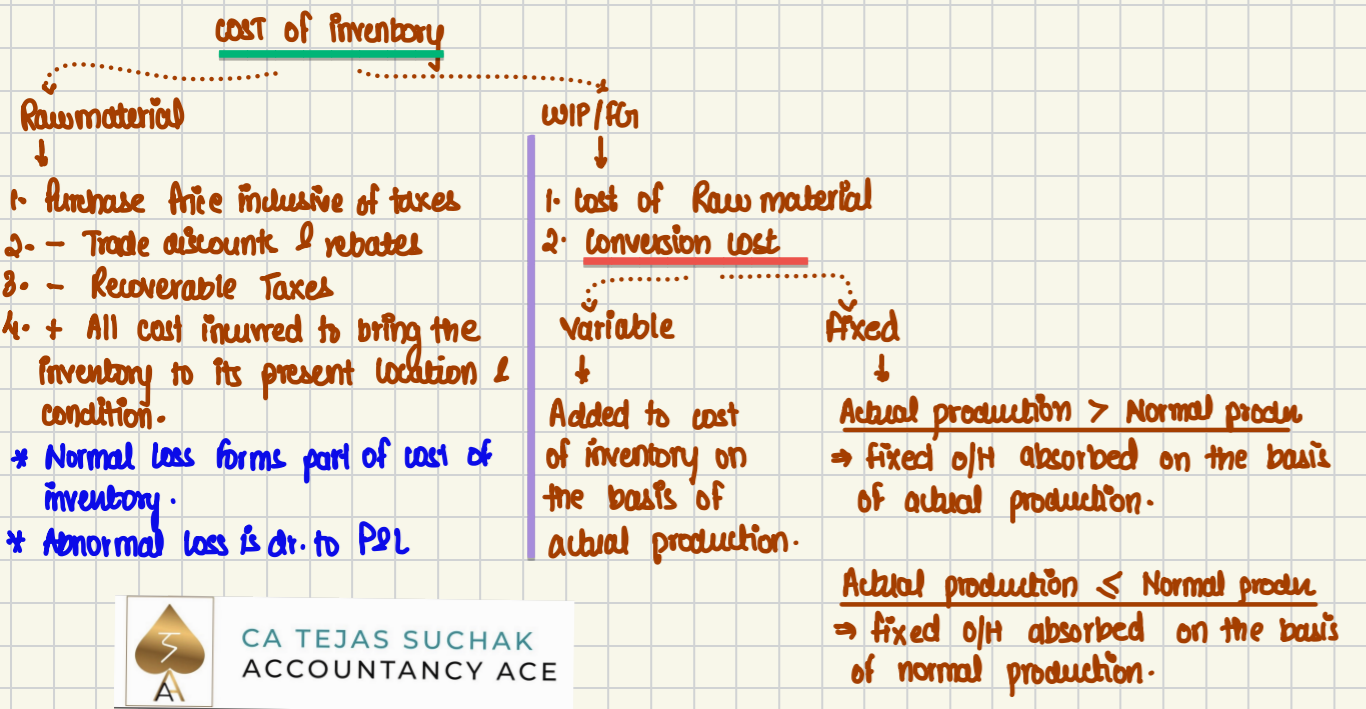 cost of inventory
Raw material
1. Purchase Price inclusive of taxes
2. - Trade discount & rebates
3. - Recoverable Taxes
4. + All cost incurred to bring the
inventory to its present location &
condition.
* Normal loss forms part of cost of
inventory.
* Abnormal loss is dr. to P&L
WIP/FG
1. Cost of Raw material
2. Conversion cost
Variable
Added to cost
of inventory on
the basis of
actual production.
Fixed
Actual production > Normal prodn
⇒ fixed O/H absorbed on the basis
of actual production.
Actual production ≤ Normal prodn
⇒ fixed O/H absorbed on the basis
of normal production.
CA TEJAS SUCHAK
ACCOUNTANCY ACE